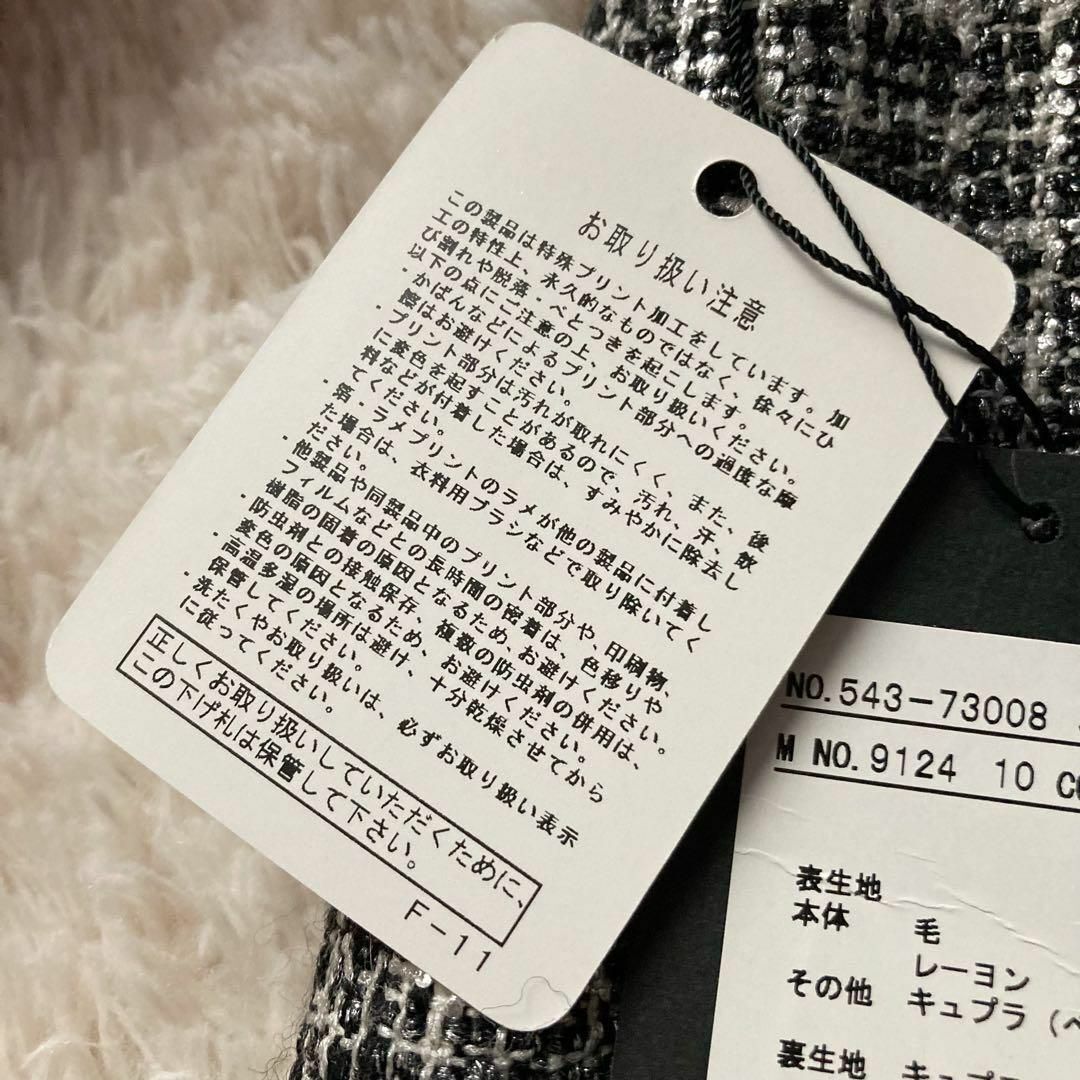 お取り扱い注意
この製品は特殊プリント加工をしています。加
工の特性上、永久的なものではなく、徐々にひ
び割れや脱落・べとつきを起こします。
以下の点にご注意の上、お取り扱いください。
・かばんなどによるプリント部分への過度な摩
擦はお避けください。
・プリント部分は汚れが取れにくく、また、後
に変色を起すことがあるので、汚れ、汗、飲
料などが付着した場合は、すみやかに除去し
てください。
・箔・ラメプリントのラメが他の製品に付着し
た場合は、衣料用ブラシなどで取り除いてく
ださい。
・他製品や同製品中のプリント部分や、印刷物、
フィルムなどとの長時間の密着は、色移りや
樹脂の固着の原因となるため、お避けください。
・防虫剤との接触保存、複数の防虫剤の併用は、
変色の原因となるため、お避けください。
・高温多湿の場所は避け、十分乾燥させてから
保管してください。
・洗たくやお取り扱いは、必ずお取り扱い表示
に従ってください。
正しくお取り扱いしていただくために、
この下げ札は保管して下さい。
F-11
NO.543-73008
M NO.9124 10
表生地
本体 毛
レーヨン
その他 キュプラ(ベ
裏生地 キュプ